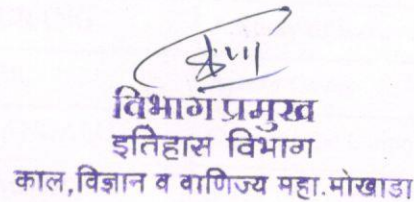 विभाग प्रमुख
इतिहास विभाग
काल,विज्ञान व वाणिज्य महा.मोखाडा